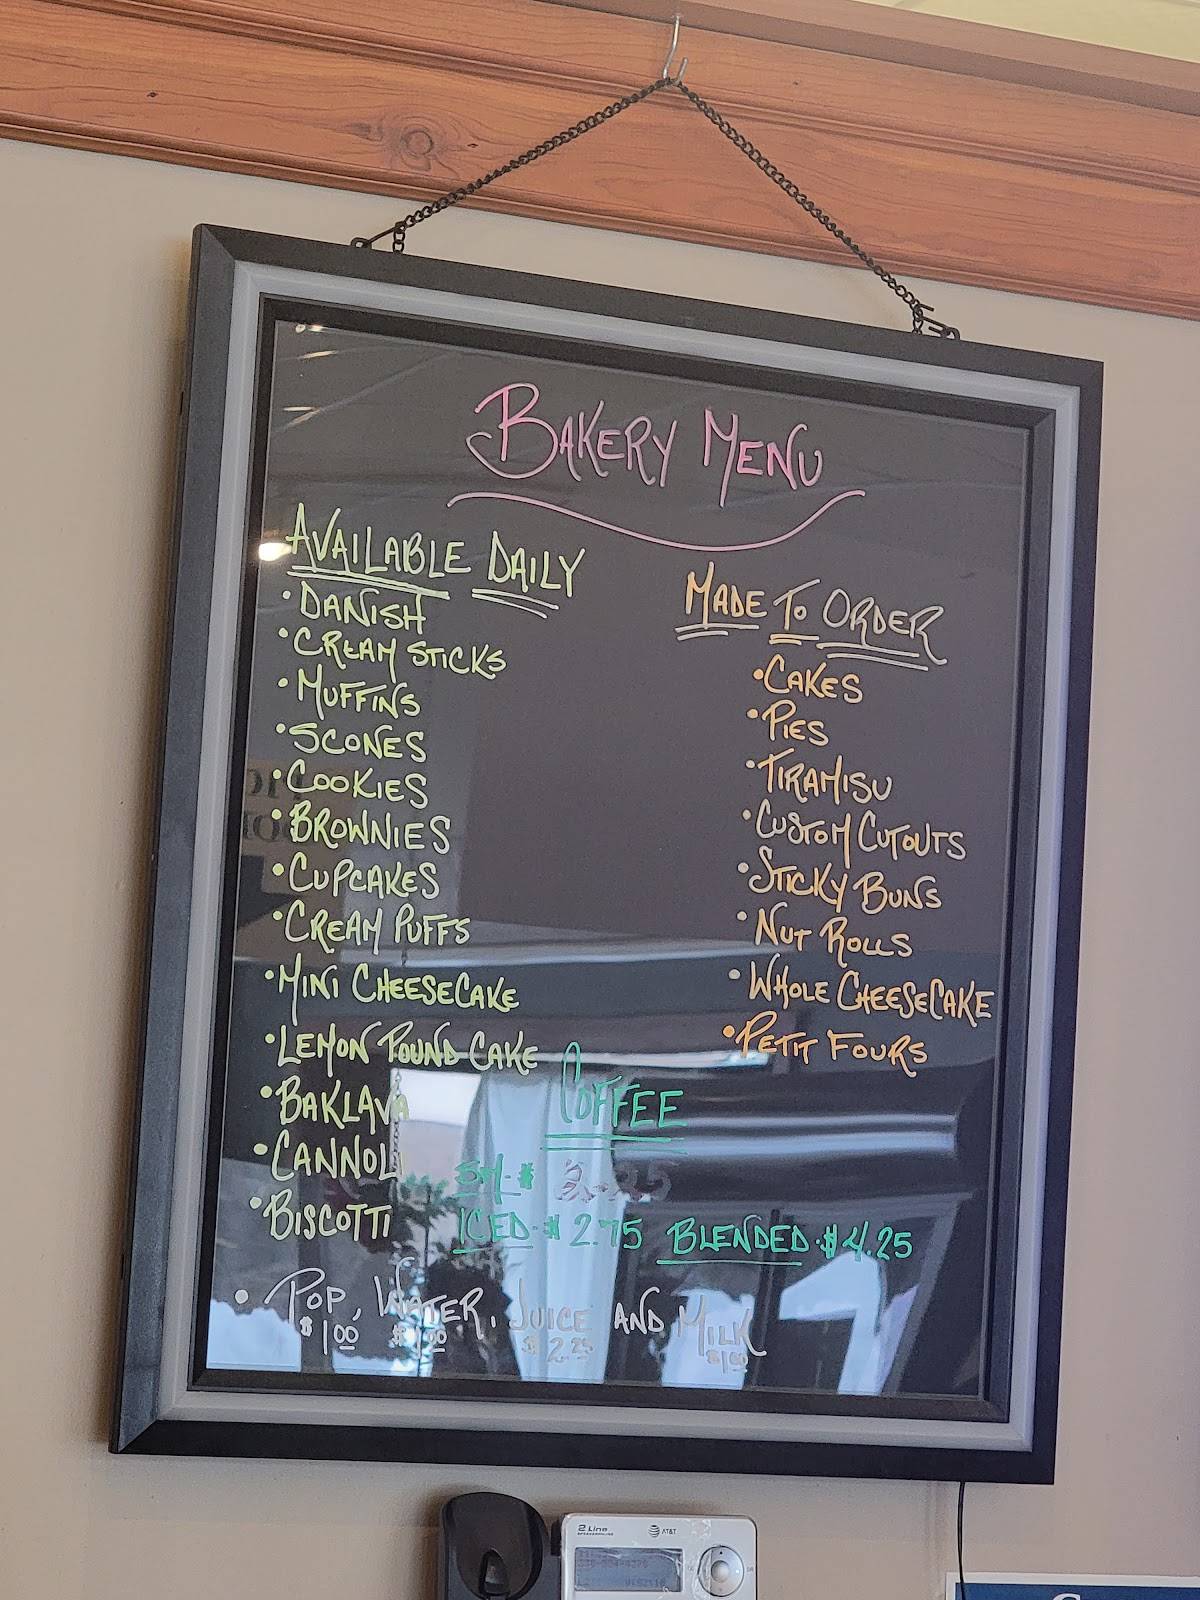 BAKERY MENU
AVAILABLE DAILY
• DANISH
• CREAM STICKS
• MUFFINS
• SCONES
• COOKIES
• BROWNIES
• CUPCAKES
• CREAM PUFFS
• MINI CHEESECAKE
• LEMON POUND CAKE
• BAKLAVA
• CANNOLI
• BISCOTTI
MADE TO ORDER
• CAKES
• PIES
• TIRAMISU
• CUSTOM CUTOUTS
• STICKY BUNS
• NUT ROLLS
• WHOLE CHEESECAKE
• PETIT FOURS
COFFEE
SM-$
ICED-$2.75 BLENDED-$4.25
• POP, WATER, JUICE AND MILK
$1.00 $1.00 $2.25 $1.00
2 Line
AT&T